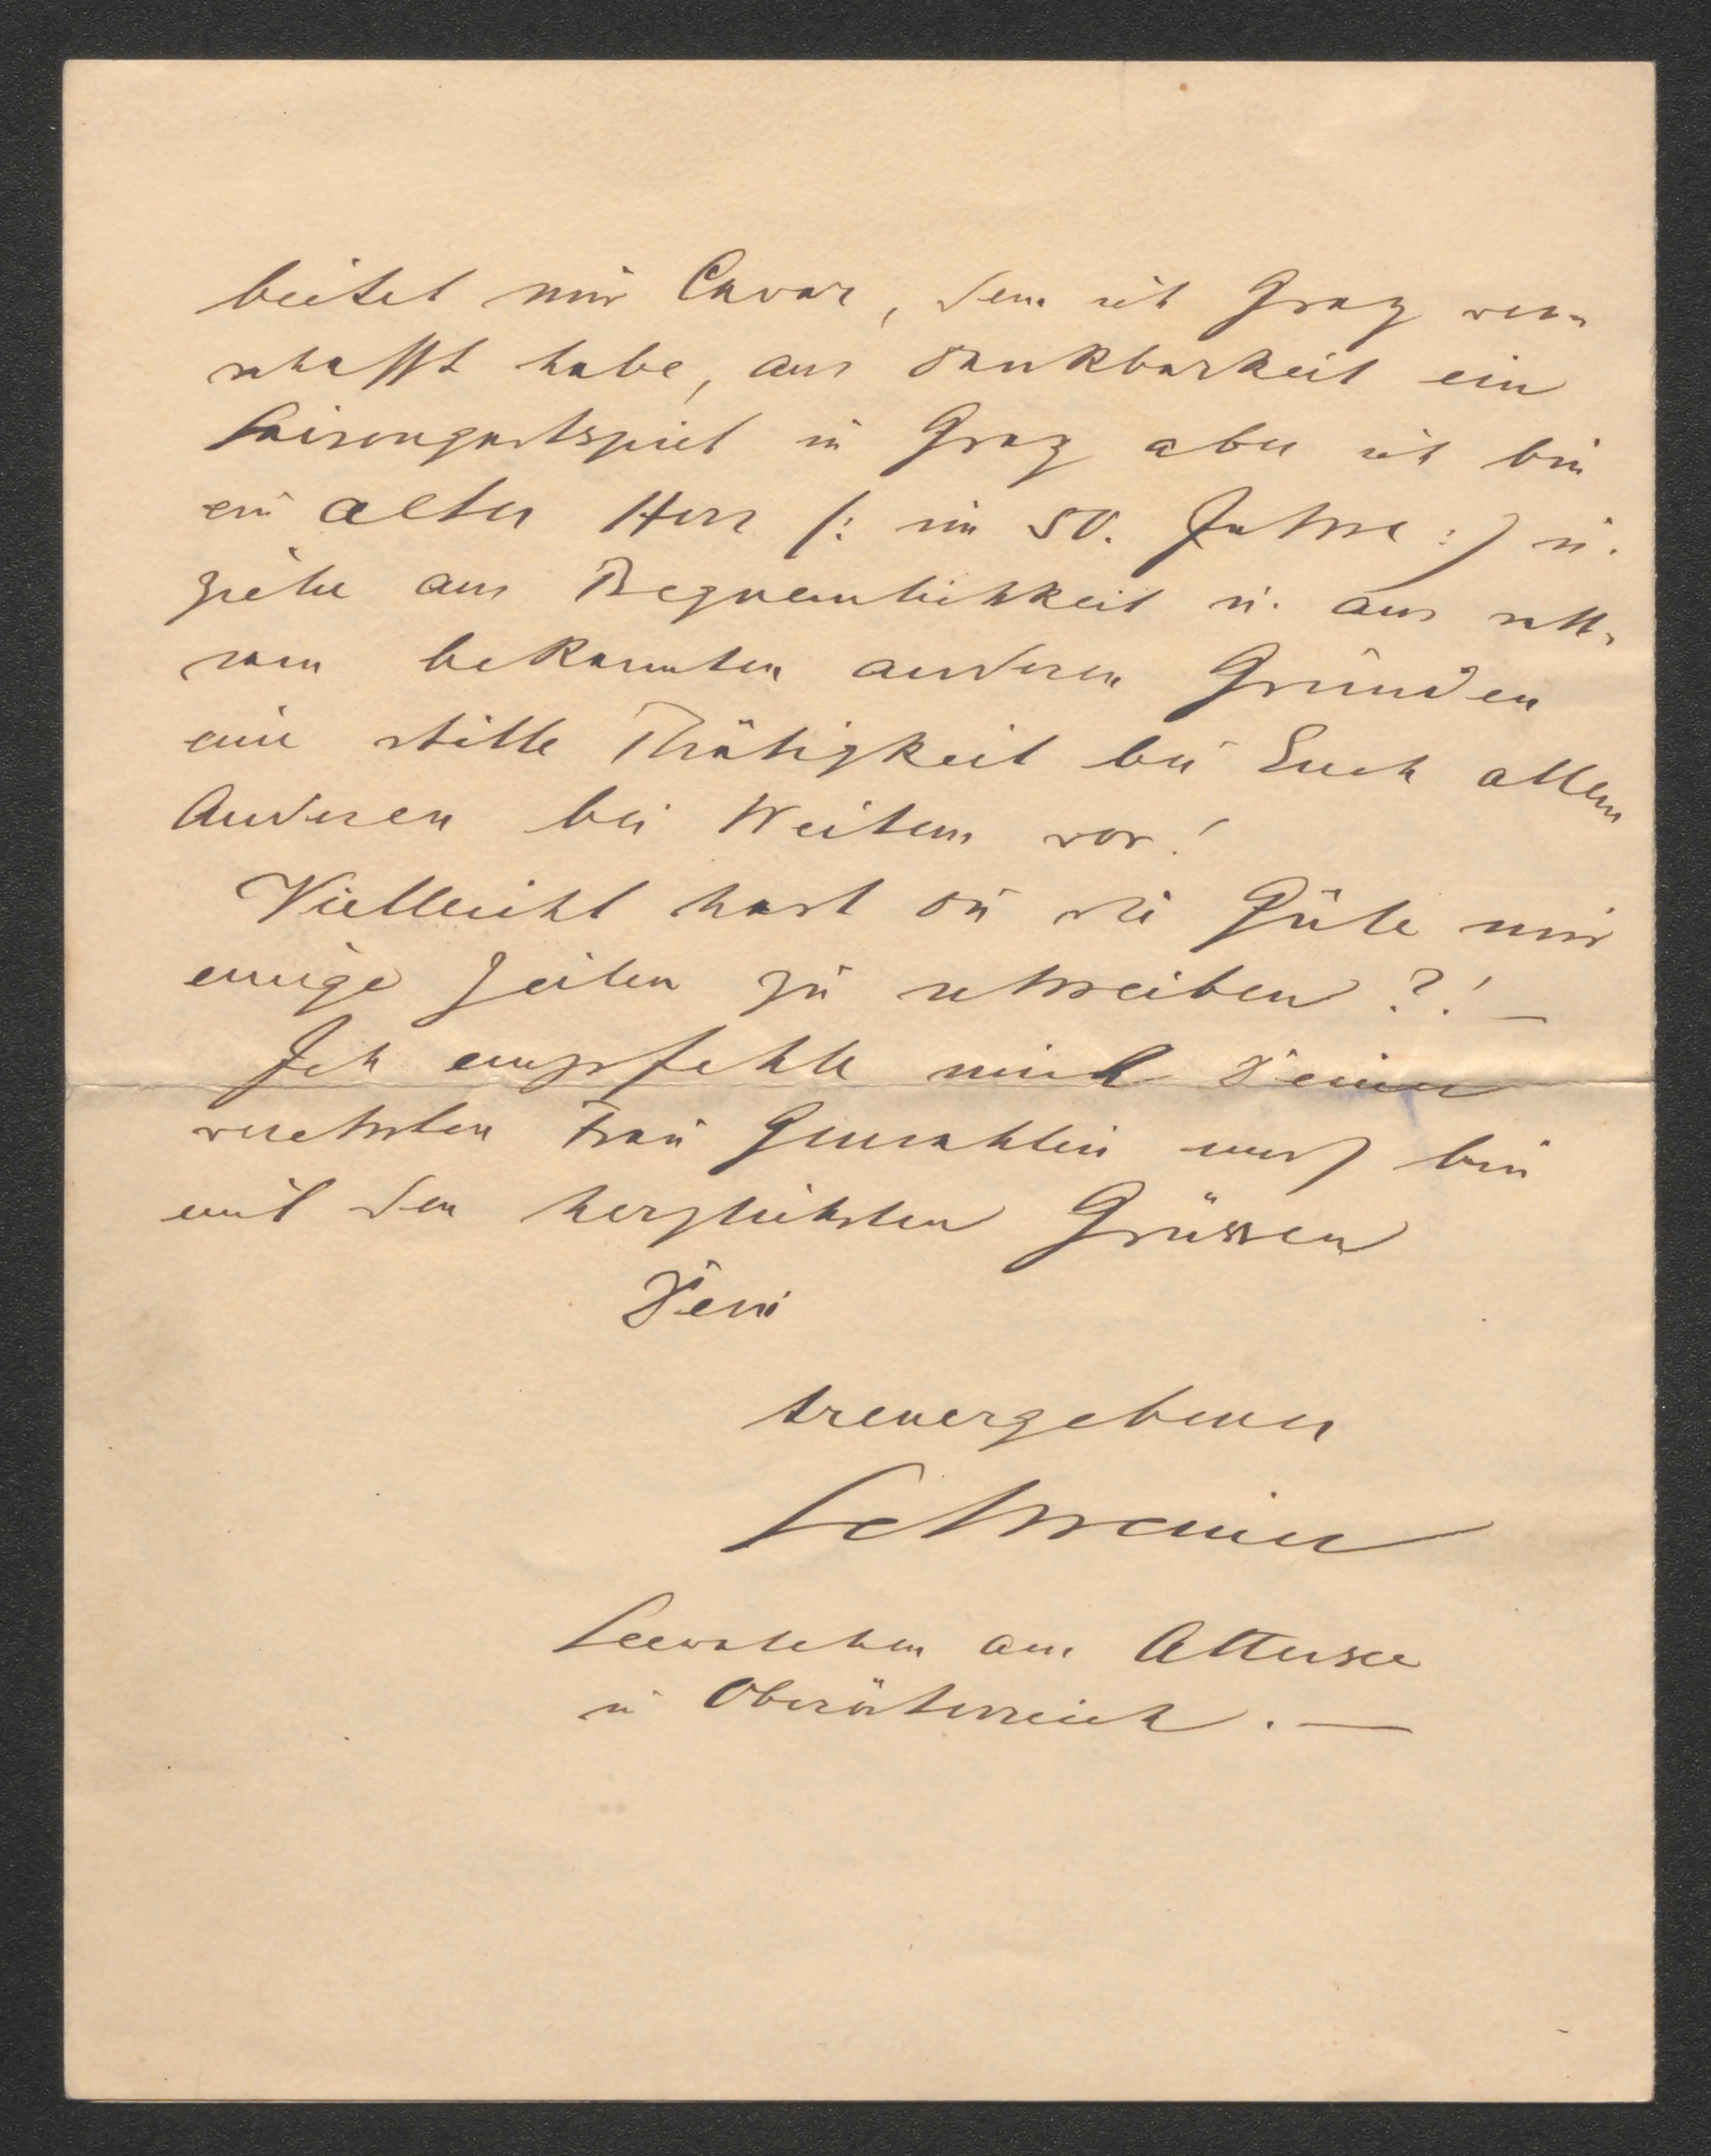 bietet mir Cavar, dem ich Graz ver-
schafft habe, aus Dankbarkeit ein
Saisongastspiel in Graz aber ich bin
ein alter Herr (: im 50. Jahre :) u.
ziehe aus Bequemlichkeit u. aus satt-
sam bekannten anderen Gründen
eine stille Thätigkeit bei Euch allem
Anderen bei Weitem vor!
Vielleicht hast Du die Güte mir
einige Zeilen zu schreiben?! —
Ich empfehle mich Deiner
verehrten Frau Gemahlin und bin
mit den herzlichsten Grüssen
Dein
treuergebener
Schreiner
Seewalchen am Attersee
in Oberösterreich. —